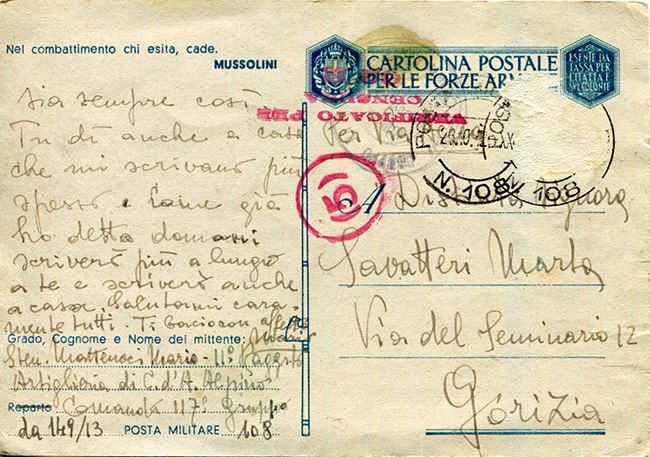 Nel combattimento chi esita, cade.
MUSSOLINI
sia sempre così
Tu dì anche a casa
che mi scrivano più
spesso e come già
ho detto domani
scriverò più a lungo
a te e scriverò anche
a casa. Salutami cara-
mente tutti. Ti bacio con
Grado, Cognome e Nome del mittente:
Sten. Mattenoci Mario - 11°
Artiglieria di C. d'A. Alpino
Reparto Comando 117° Gruppo
da 149/13 POSTA MILITARE 108
CARTOLINA POSTALE
PER LE FORZE ARM
ESENTE DA
TASSA PER
L'ITALIA E
SUE COLONIE
VERIFICATO PER
CENSURA
Per Via
N. 108
N. 108
(5)
A
Signora
Savatteri Marta
Via del Seminario 12
Gorizia